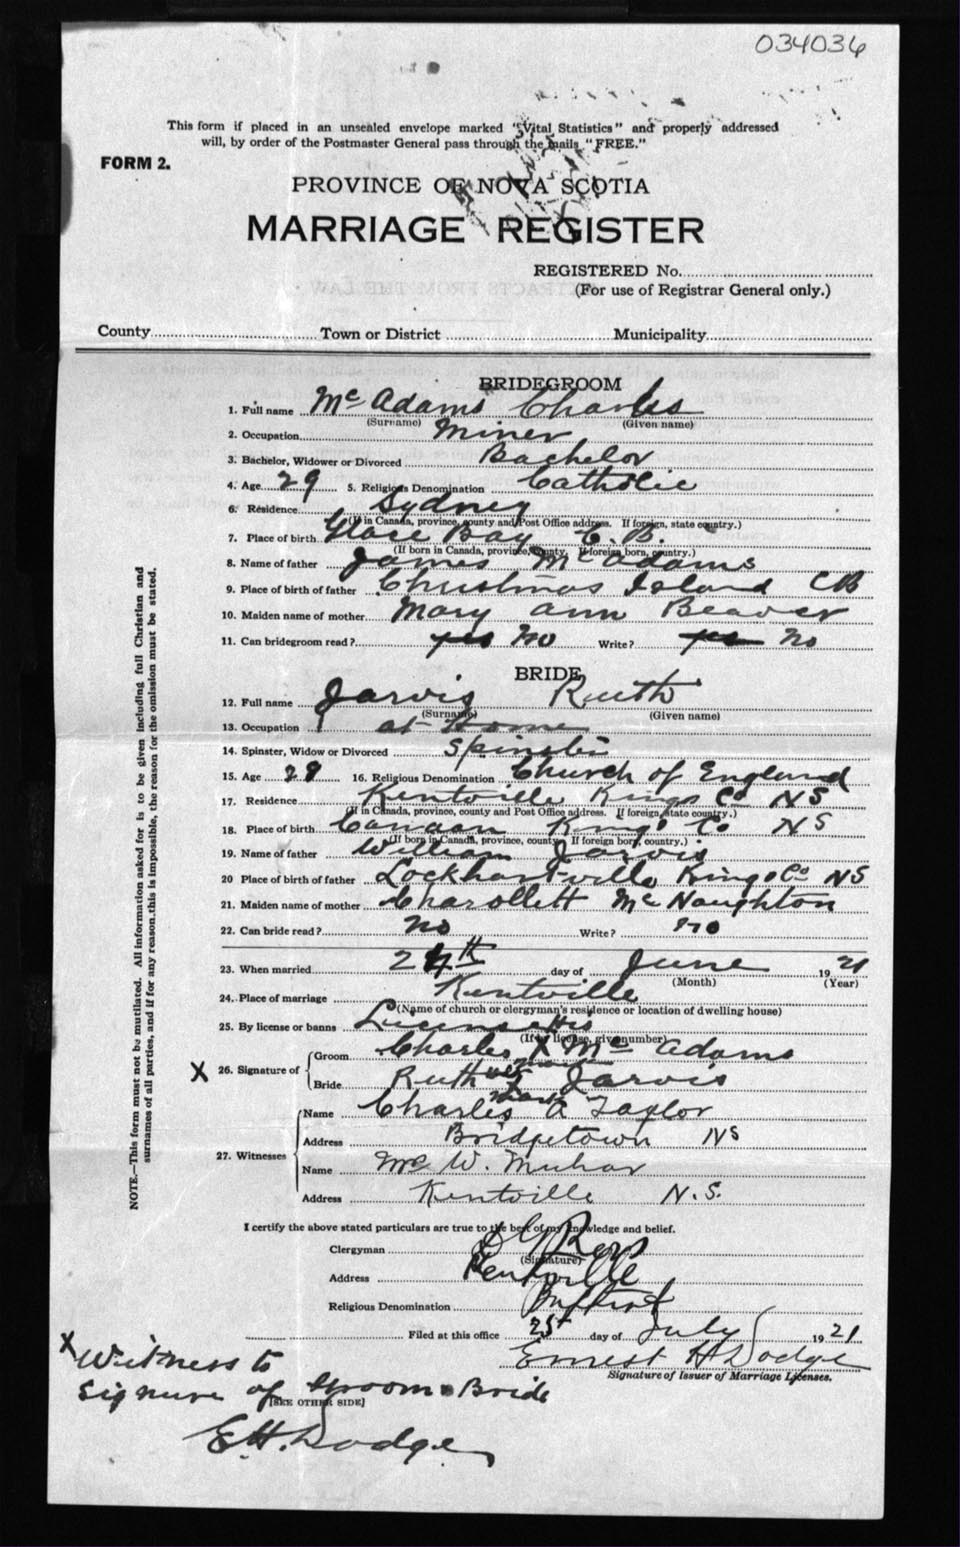 034036
This form if placed in an unsealed envelope marked "Vital Statistics" and properly addressed
will, by order of the Postmaster General pass through the mails "FREE."
FORM 2.
PROVINCE OF NOVA SCOTIA
MARRIAGE REGISTER
REGISTERED No.
(For use of Registrar General only.)
County Town or District Municipality
BRIDEGROOM
1. Full name Mc Adams Charles
(Surname) (Given name)
2. Occupation Miner
3. Bachelor, Widower or Divorced Bachelor
4. Age 29 5. Religious Denomination Catholic
6. Residence Sydney
(If in Canada, province, county and Post Office address. If foreign, state country.)
7. Place of birth Glace Bay C. B.
(If born in Canada, province, county. If foreign born, country.)
8. Name of father James McAdams
9. Place of birth of father Christmas Island CB
10. Maiden name of mother Mary Ann Beaver
11. Can bridegroom read? yes No Write? yes No
BRIDE
12. Full name Jarvis Ruth
(Surname) (Given name)
13. Occupation at Home
14. Spinster, Widow or Divorced Spinster
15. Age 28 16. Religious Denomination Church of England
17. Residence Kentville Kings Co NS
(If in Canada, province, county and Post Office address. If foreign, state country.)
18. Place of birth Canaan Kings Co NS
(If born in Canada, province, county. If foreign born, country.)
19. Name of father William Jarvis
20 Place of birth of father Lockhartville Kings Co NS
21. Maiden name of mother Charollett McNaughton
22. Can bride read? No Write? No
23. When married 24th day of June 1921
(Month) (Year)
24. Place of marriage Kentville
(Name of church or clergyman's residence or location of dwelling house)
25. By license or banns License
(If by license, give number)
X 26. Signature of
Groom Charles his X Mc Adams
mark
Bride Ruth her X Jarvis
mark
27. Witnesses
Name Charles A Taylor
Address Bridgetown NS
Name Mrs W.
Address Kentville N.S.
I certify the above stated particulars are true to the best of my knowledge and belief.
Clergyman
(Signature)
Address Kentville
Religious Denomination Baptist
Filed at this office day of July 1921
Ernest H Dodge
Signature of Issuer of Marriage Licenses.
X Witness to
Signure of Groom & Bride
[SEE OTHER SIDE]
E.H. Dodge
NOTE.—This form must not be mutilated. All information asked for is to be given including full Christian and
surnames of all parties, and if for any reason this is impossible, the reason for the omission must be stated.